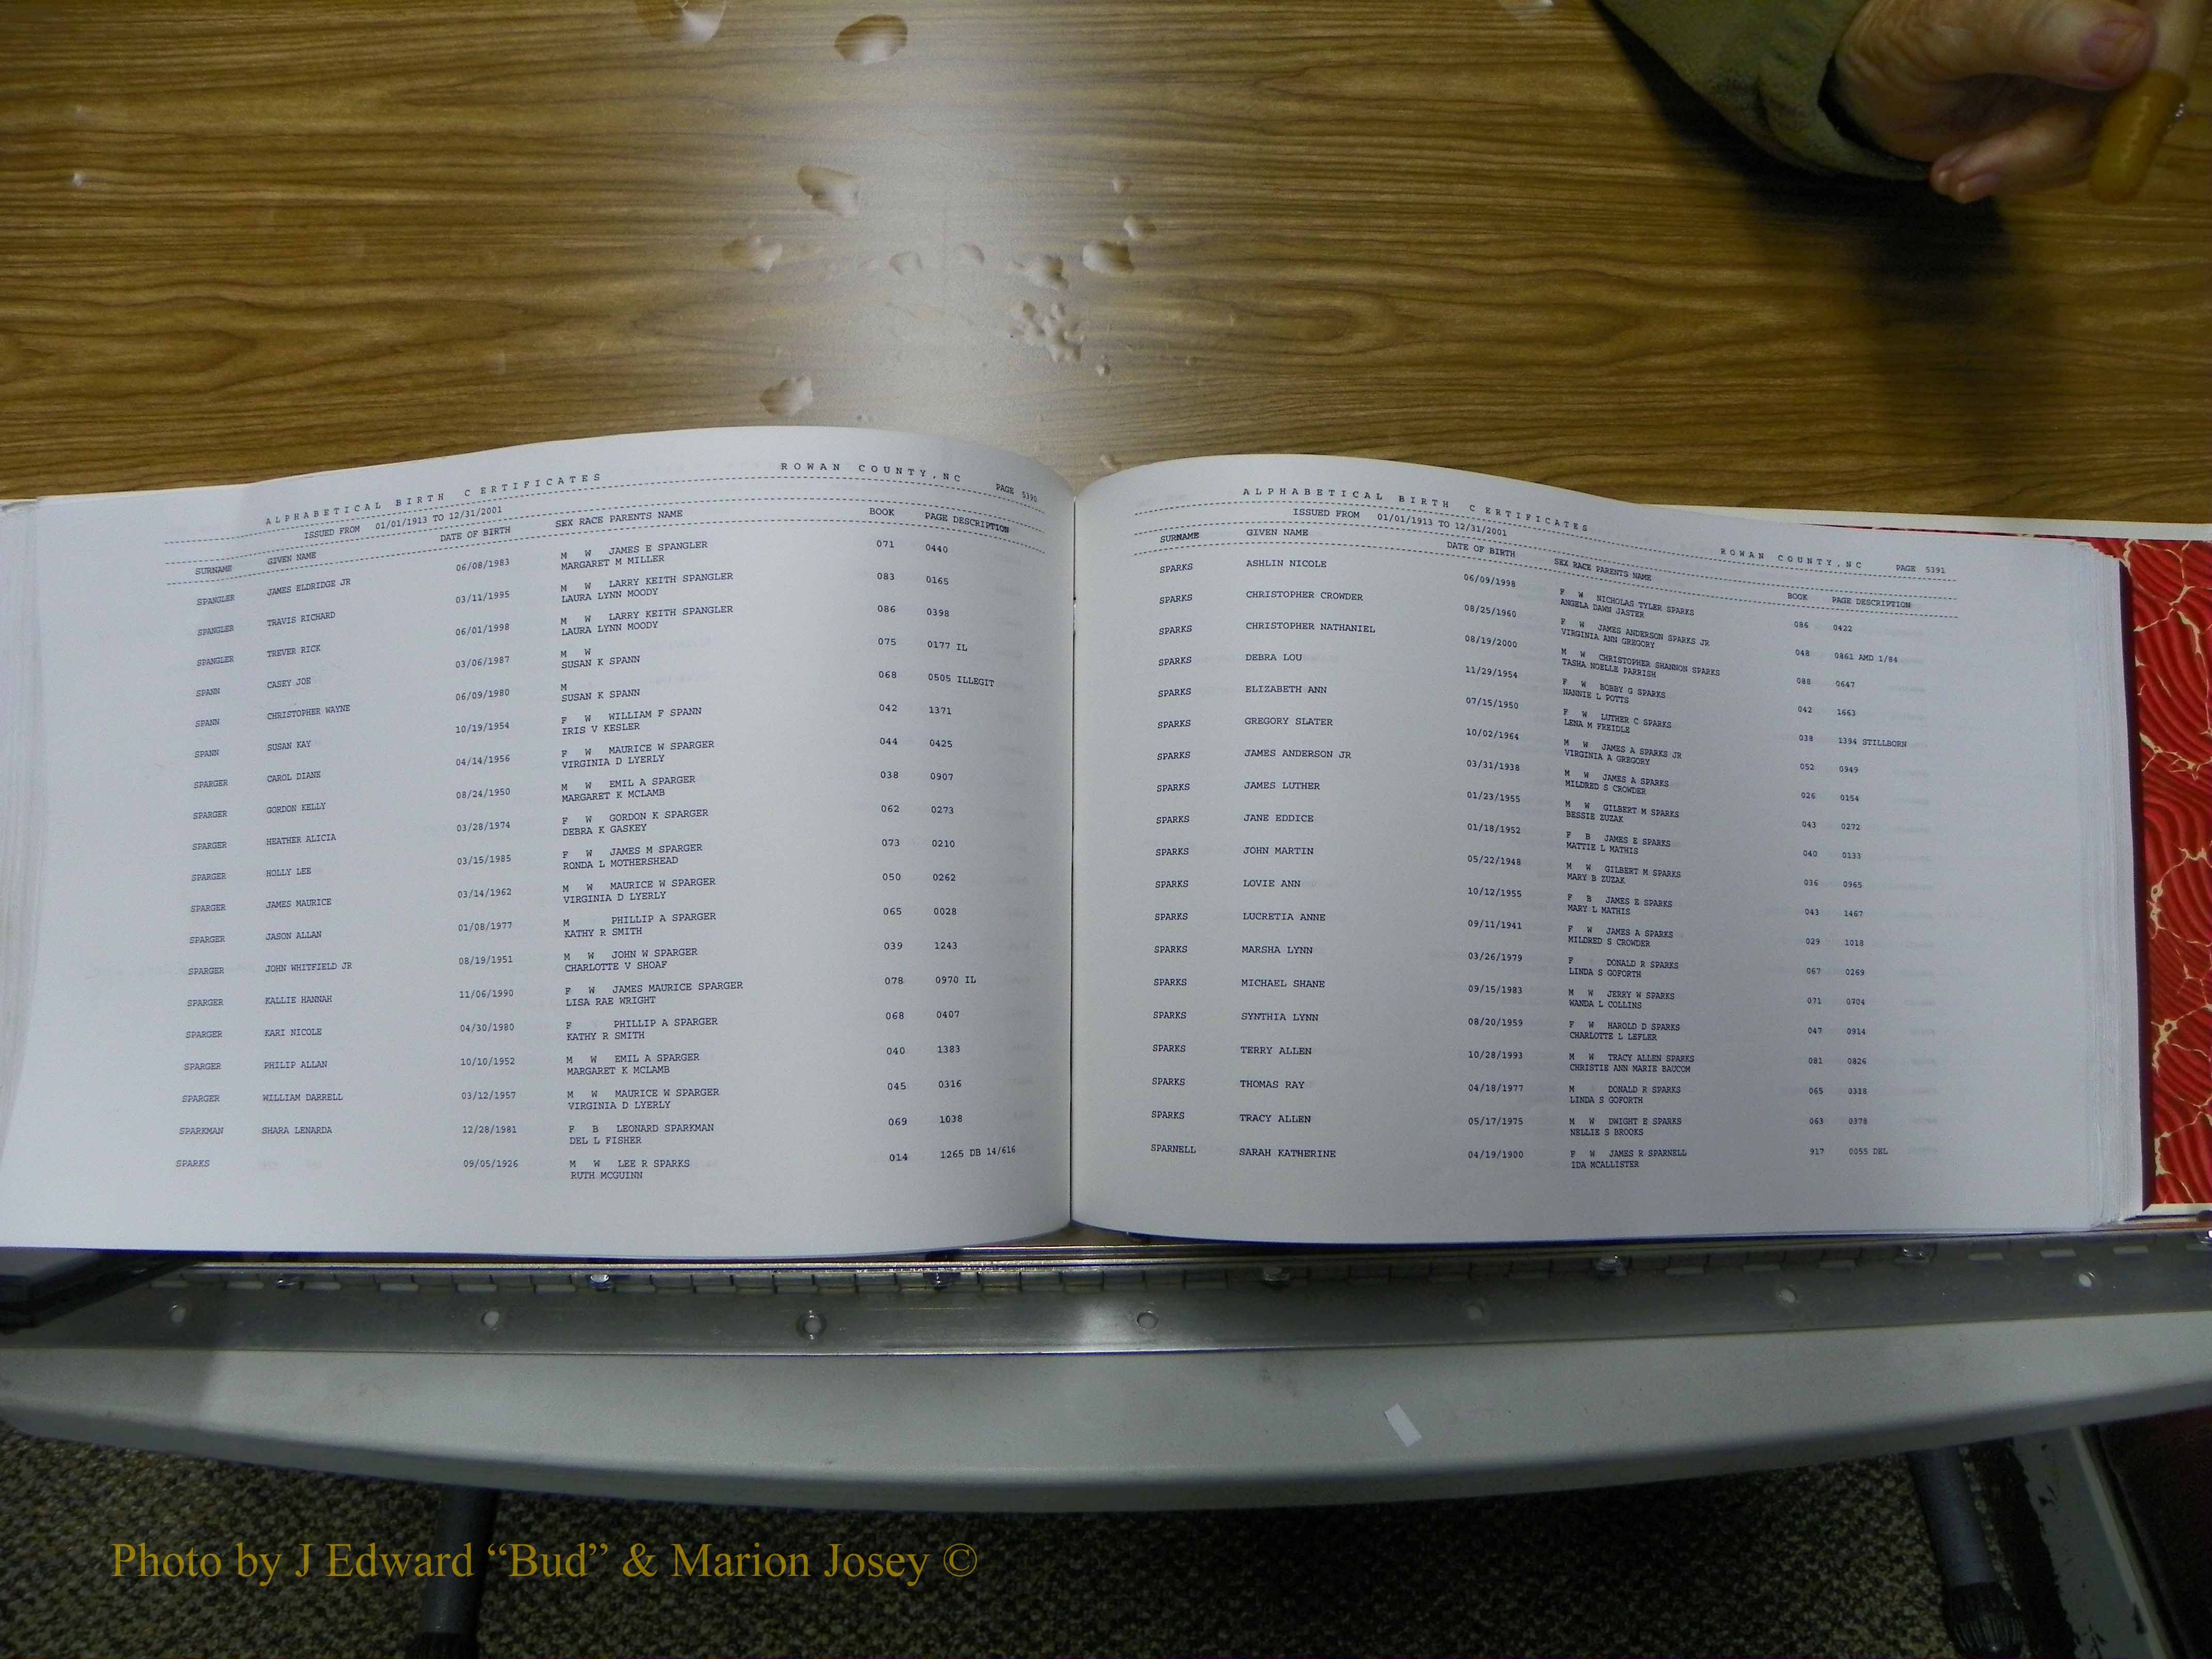 ALPHABETICAL BIRTH C ERTIFICATES ROWAN COUNTY,NC PAGE 5390
ISSUED FROM 01/01/1913 TO 12/31/2001
SURNAME GIVEN NAME DATE OF BIRTH SEX RACE PARENTS NAME BOOK PAGE DESCRIPTION
SPANGLER JAMES ELDRIDGE JR 06/08/1983 M W JAMES E SPANGLER 071 0440
MARGARET M MILLER
SPANGLER TRAVIS RICHARD 03/11/1995 M W LARRY KEITH SPANGLER 083 0165
LAURA LYNN MOODY
SPANGLER TREVER RICK 06/01/1998 M W LARRY KEITH SPANGLER 086 0398
LAURA LYNN MOODY
SPANN CASEY JOE 03/06/1987 M W 075 0177 IL
SUSAN K SPANN
SPANN CHRISTOPHER WAYNE 06/09/1980 M 068 0505 ILLEGIT
SUSAN K SPANN
SPANN SUSAN KAY 10/19/1954 F W WILLIAM F SPANN 042 1371
IRIS V KESLER
SPARGER CAROL DIANE 04/14/1956 F W MAURICE W SPARGER 044 0425
VIRGINIA D LYERLY
SPARGER GORDON KELLY 08/24/1950 M W EMIL A SPARGER 038 0907
MARGARET K MCLAMB
SPARGER HEATHER ALICIA 03/28/1974 F W GORDON K SPARGER 062 0273
DEBRA K GASKEY
SPARGER HOLLY LEE 03/15/1985 F W JAMES M SPARGER 073 0210
RONDA L MOTHERSHEAD
SPARGER JAMES MAURICE 03/14/1962 M W MAURICE W SPARGER 050 0262
VIRGINIA D LYERLY
SPARGER JASON ALLAN 01/08/1977 M PHILLIP A SPARGER 065 0028
KATHY R SMITH
SPARGER JOHN WHITFIELD JR 08/19/1951 M W JOHN W SPARGER 039 1243
CHARLOTTE V SHOAF
SPARGER KALLIE HANNAH 11/06/1990 F W JAMES MAURICE SPARGER 078 0970 IL
LISA RAE WRIGHT
SPARGER KARI NICOLE 04/30/1980 F PHILLIP A SPARGER 068 0407
KATHY R SMITH
SPARGER PHILIP ALLAN 10/10/1952 M W EMIL A SPARGER 040 1383
MARGARET K MCLAMB
SPARGER WILLIAM DARRELL 03/12/1957 M W MAURICE W SPARGER 045 0316
VIRGINIA D LYERLY
SPARKMAN SHARA LENARDA 12/28/1981 F B LEONARD SPARKMAN 069 1038
DEL L FISHER
SPARKS 09/05/1926 M W LEE R SPARKS 014 1265 DB 14/616
RUTH MCGUINN
ALPHABETICAL BIRTH C ERTIFICATES ROWAN COUNTY,NC PAGE 5391
ISSUED FROM 01/01/1913 TO 12/31/2001
SURNAME GIVEN NAME DATE OF BIRTH SEX RACE PARENTS NAME BOOK PAGE DESCRIPTION
SPARKS ASHLIN NICOLE 06/09/1998 F W NICHOLAS TYLER SPARKS 086 0422
ANGELA DAWN JASTER
SPARKS CHRISTOPHER CROWDER 08/25/1960 F W JAMES ANDERSON SPARKS JR 048 0861 AMD 1/84
VIRGINIA ANN GREGORY
SPARKS CHRISTOPHER NATHANIEL 08/19/2000 M W CHRISTOPHER SHANNON SPARKS 088 0647
TASHA NOELLE PARRISH
SPARKS DEBRA LOU 11/29/1954 F W BOBBY G SPARKS 042 1663
NANNIE L POTTS
SPARKS ELIZABETH ANN 07/15/1950 F W LUTHER C SPARKS 038 1394 STILLBORN
LENA M FREIDLE
SPARKS GREGORY SLATER 10/02/1964 M W JAMES A SPARKS JR 052 0949
VIRGINIA A GREGORY
SPARKS JAMES ANDERSON JR 03/31/1938 M W JAMES A SPARKS 026 0154
MILDRED S CROWDER
SPARKS JAMES LUTHER 01/23/1955 M W GILBERT M SPARKS 043 0272
BESSIE ZUZAK
SPARKS JANE EDDICE 01/18/1952 F B JAMES E SPARKS 040 0133
MATTIE L MATHIS
SPARKS JOHN MARTIN 05/22/1948 M W GILBERT M SPARKS 036 0965
MARY B ZUZAK
SPARKS LOVIE ANN 10/12/1955 F B JAMES E SPARKS 043 1467
MARY L MATHIS
SPARKS LUCRETIA ANNE 09/11/1941 F W JAMES A SPARKS 029 1018
MILDRED S CROWDER
SPARKS MARSHA LYNN 03/26/1979 F DONALD R SPARKS 067 0269
LINDA S GOFORTH
SPARKS MICHAEL SHANE 09/15/1983 M W JERRY W SPARKS 071 0704
WANDA L COLLINS
SPARKS SYNTHIA LYNN 08/20/1959 F W HAROLD D SPARKS 047 0914
CHARLOTTE L LEFLER
SPARKS TERRY ALLEN 10/28/1993 M W TRACY ALLEN SPARKS 081 0826
CHRISTIE ANN MARIE BAUCOM
SPARKS THOMAS RAY 04/18/1977 M DONALD R SPARKS 065 0318
LINDA S GOFORTH
SPARKS TRACY ALLEN 05/17/1975 M W DWIGHT E SPARKS 063 0378
NELLIE S BROOKS
SPARNELL SARAH KATHERINE 04/19/1900 F W JAMES R SPARNELL 917 0055 DEL
IDA MCALLISTER
Photo by J Edward “Bud” & Marion Josey ©